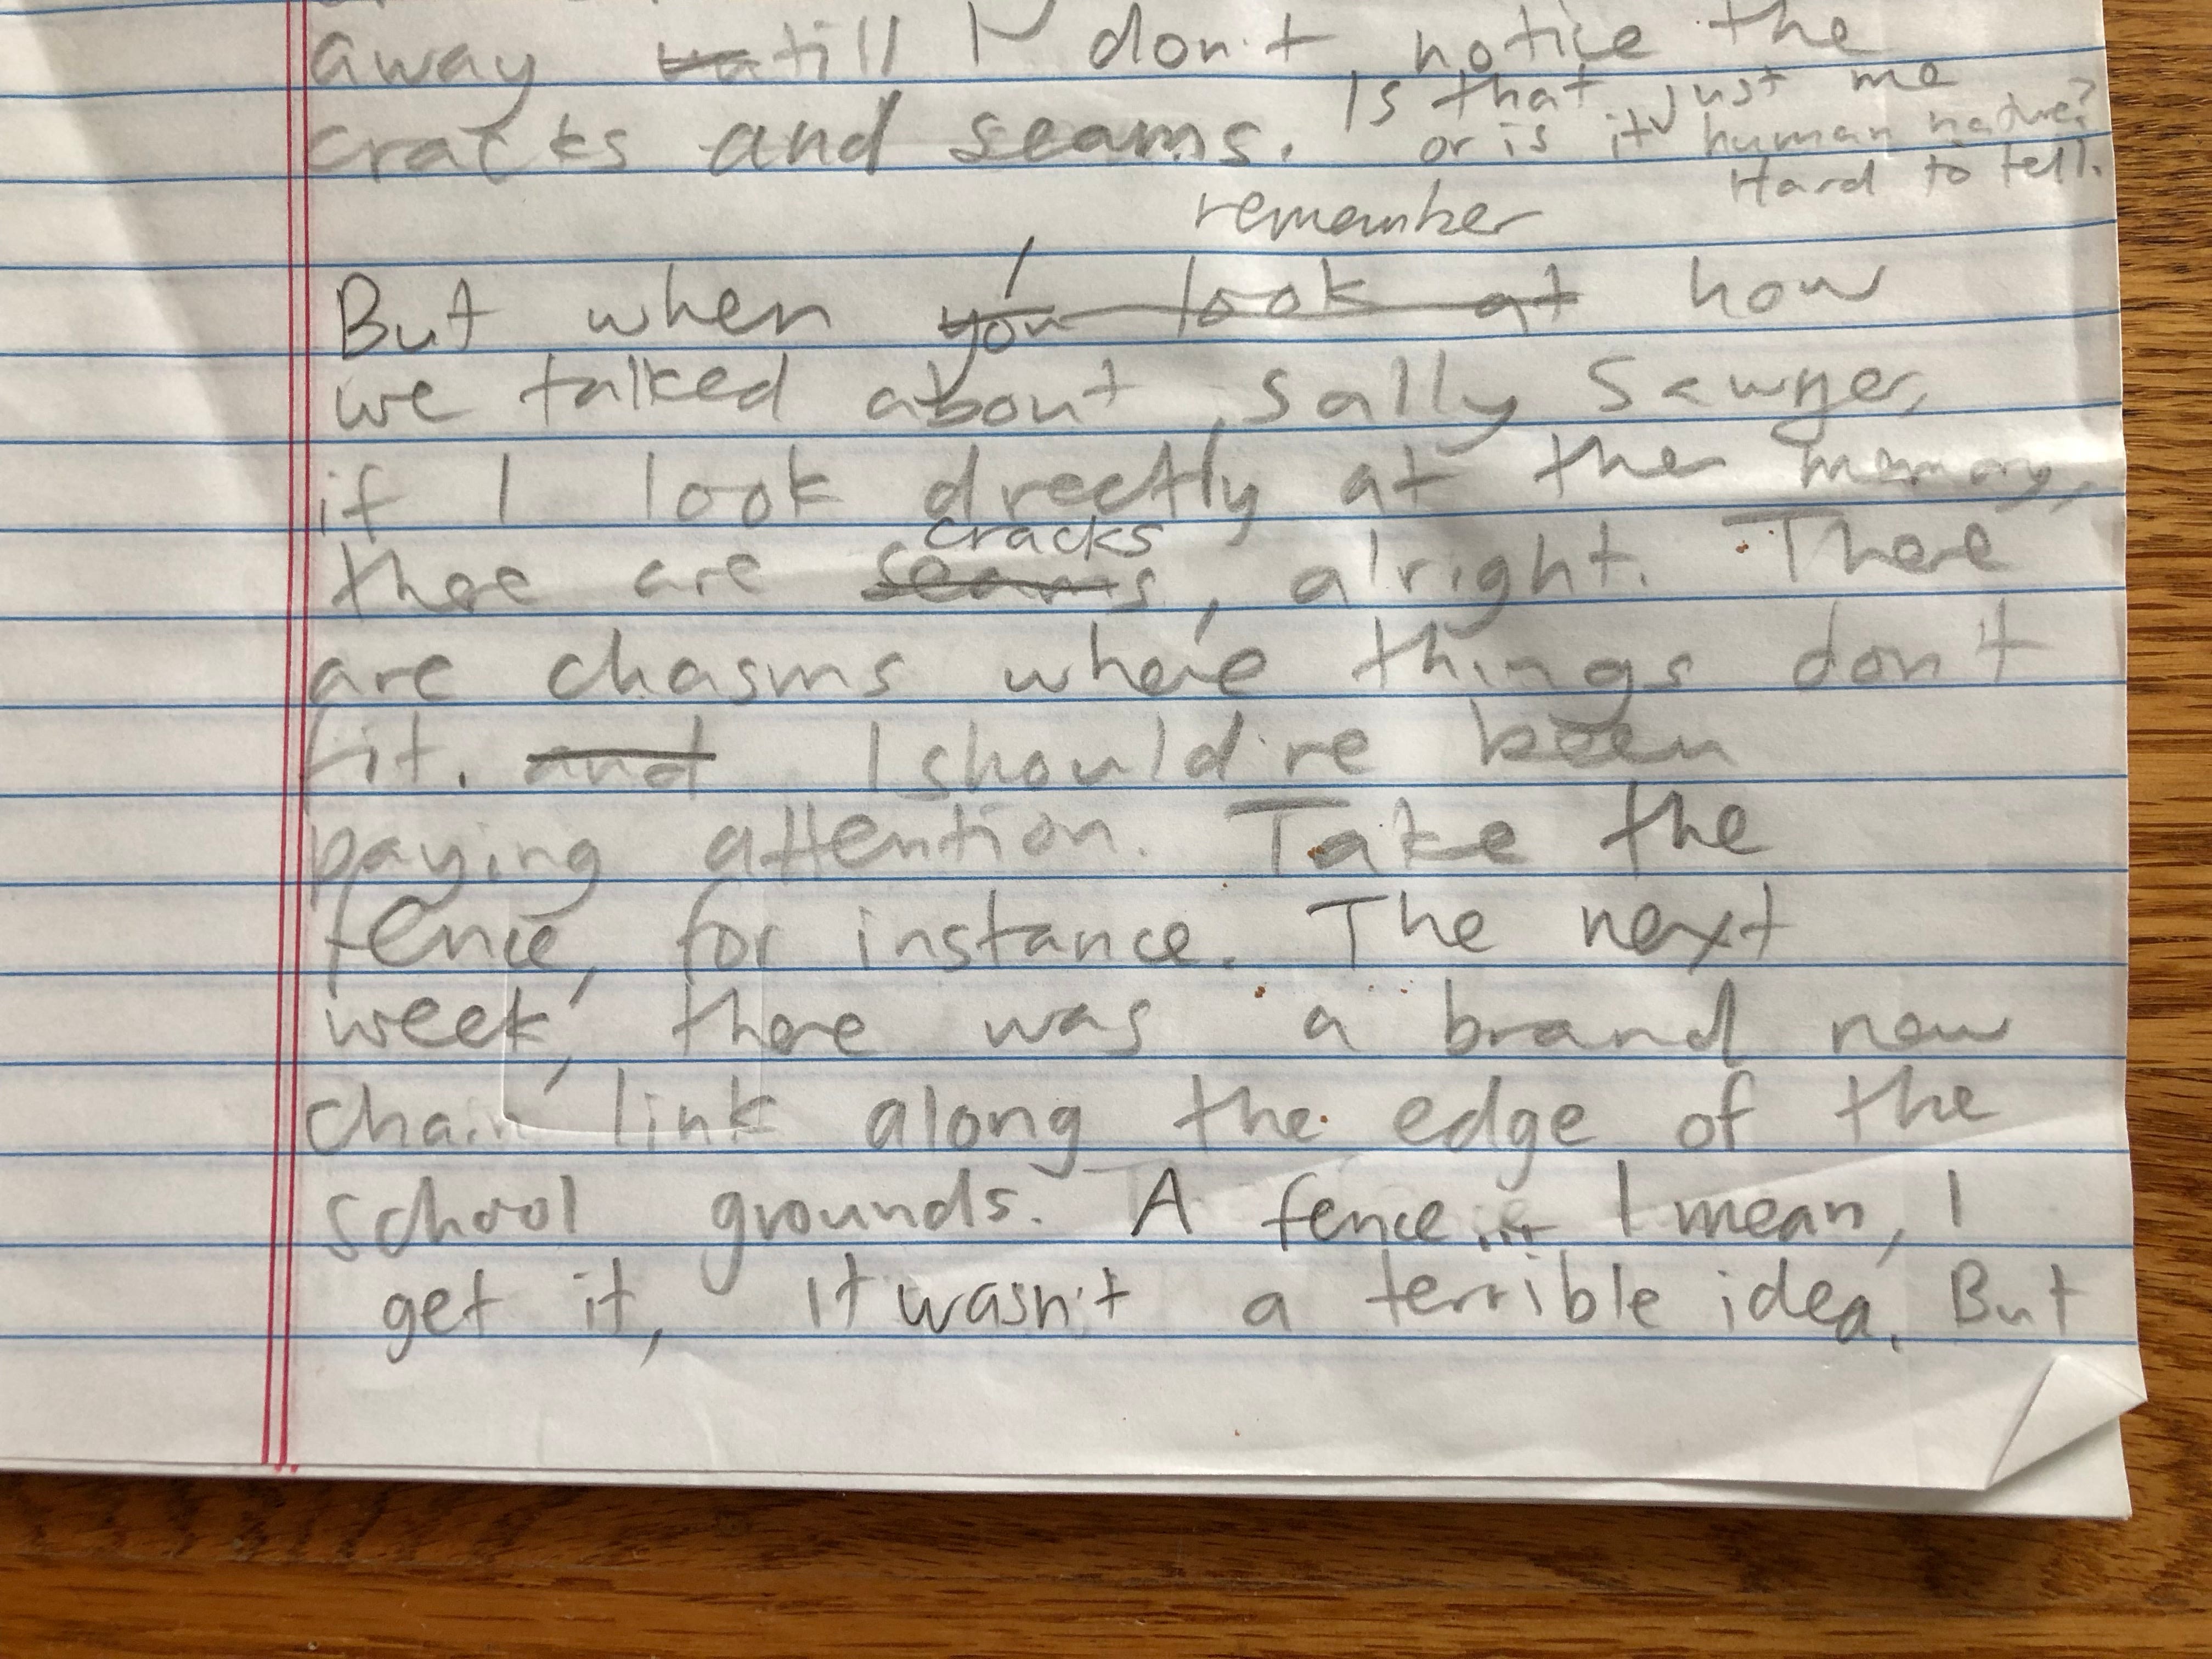 away ~~un~~till I don't notice the
cracks and seams. Is that just me
or is it human nature?
Hard to tell.
remember
But when I ~~you look at~~ how
we talked about Sally Sawyer,
if I look directly at the memory,
cracks
there are ~~seams~~, alright. There
are chasms where things don't
fit. ~~and~~ I should've been
paying attention. Take the
fence, for instance. The next
week, there was a brand new
chain link along the edge of the
school grounds. A fence... I mean, I
get it, it wasn't a terrible idea. But